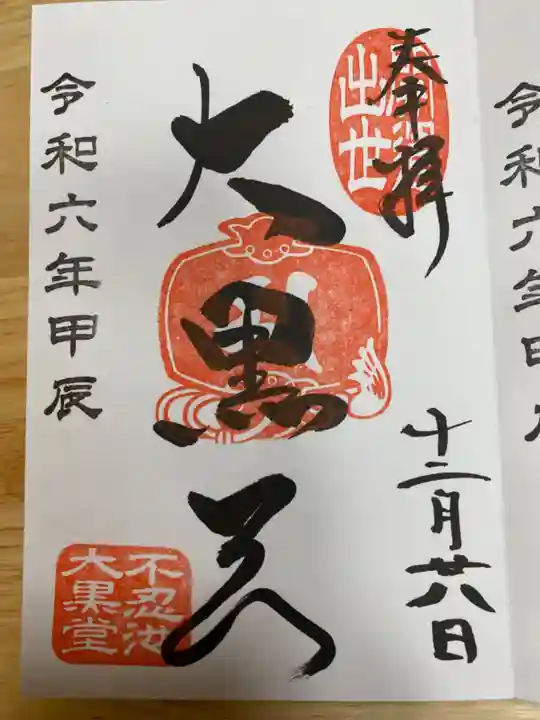 奉拝
出世
十二月廿八日
大黒天
令和六年甲辰
不忍池
大黒堂
令和六年